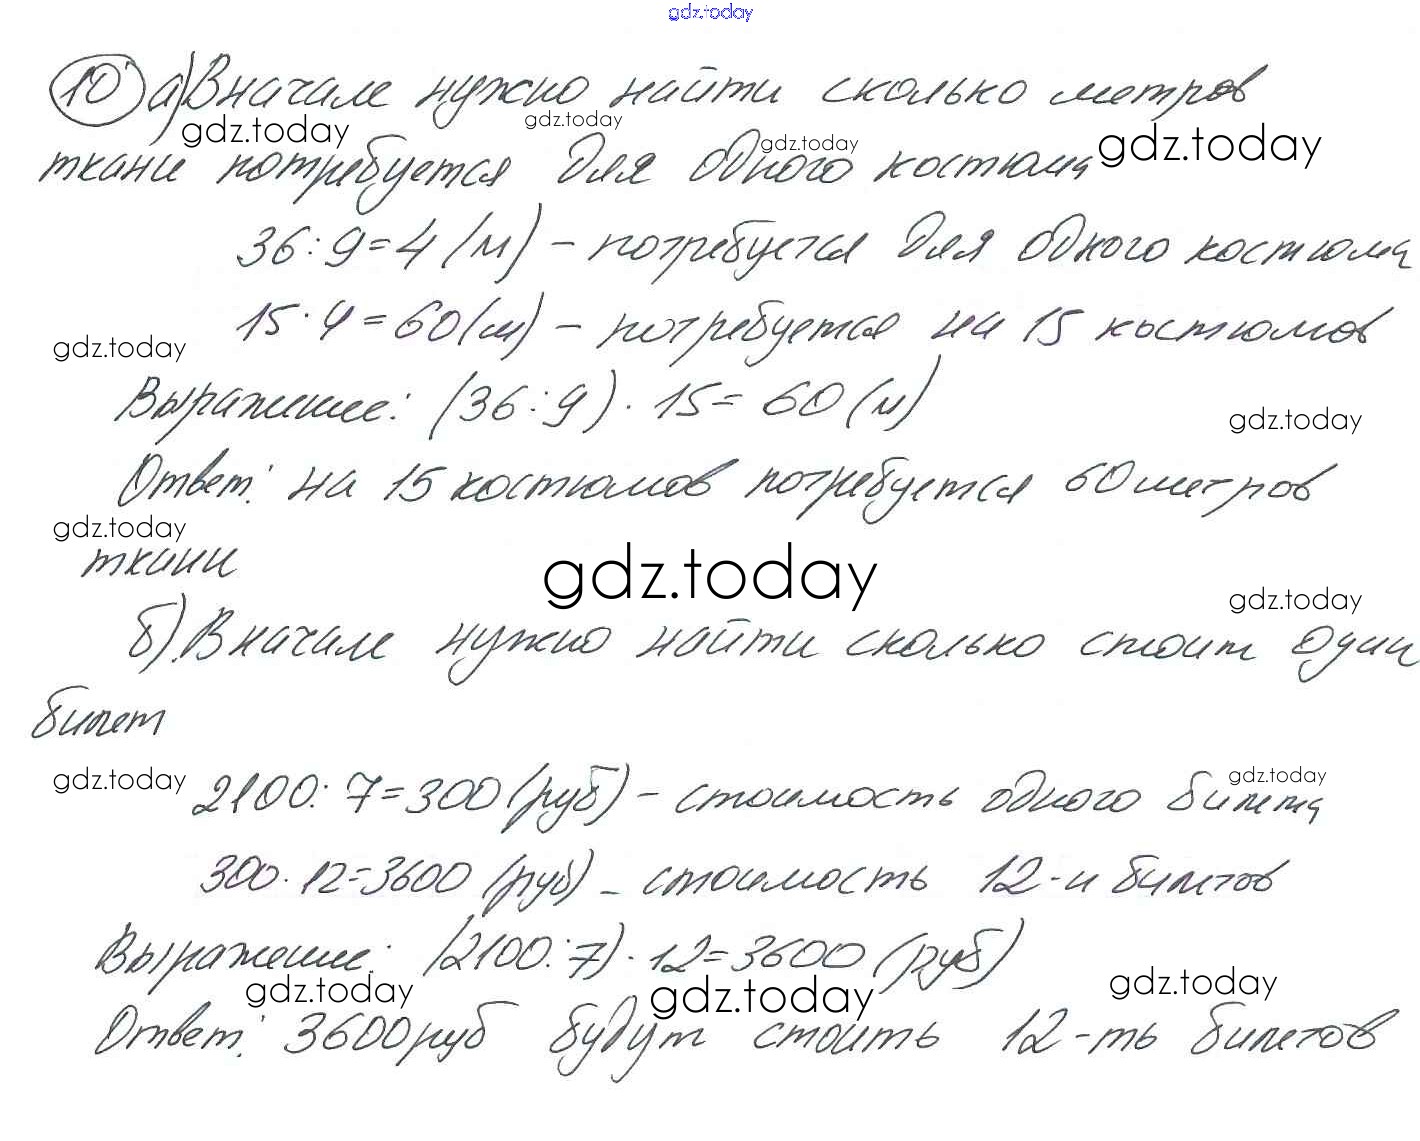 gdz.today
10 а) Вначале нужно найти сколько метров
gdz.today gdz.today gdz.today gdz.today
ткани потребуется для одного костюма
36:9=4 (м) – потребуется для одного костюма
15·4=60(м) – потребуется на 15 костюмов
gdz.today
Выражение: (36:9)·15=60(м)
gdz.today
Ответ: на 15 костюмов потребуется 60 метров
gdz.today
ткани
gdz.today
gdz.today
б) Вначале нужно найти сколько стоит один
билет
gdz.today gdz.today
2100:7=300(руб) – стоимость одного билета
300·12=3600 (руб) – стоимость 12-и билетов
Выражение: (2100:7)·12=3600 (руб)
gdz.today gdz.today gdz.today
Ответ: 3600руб будут стоить 12-ть билетов